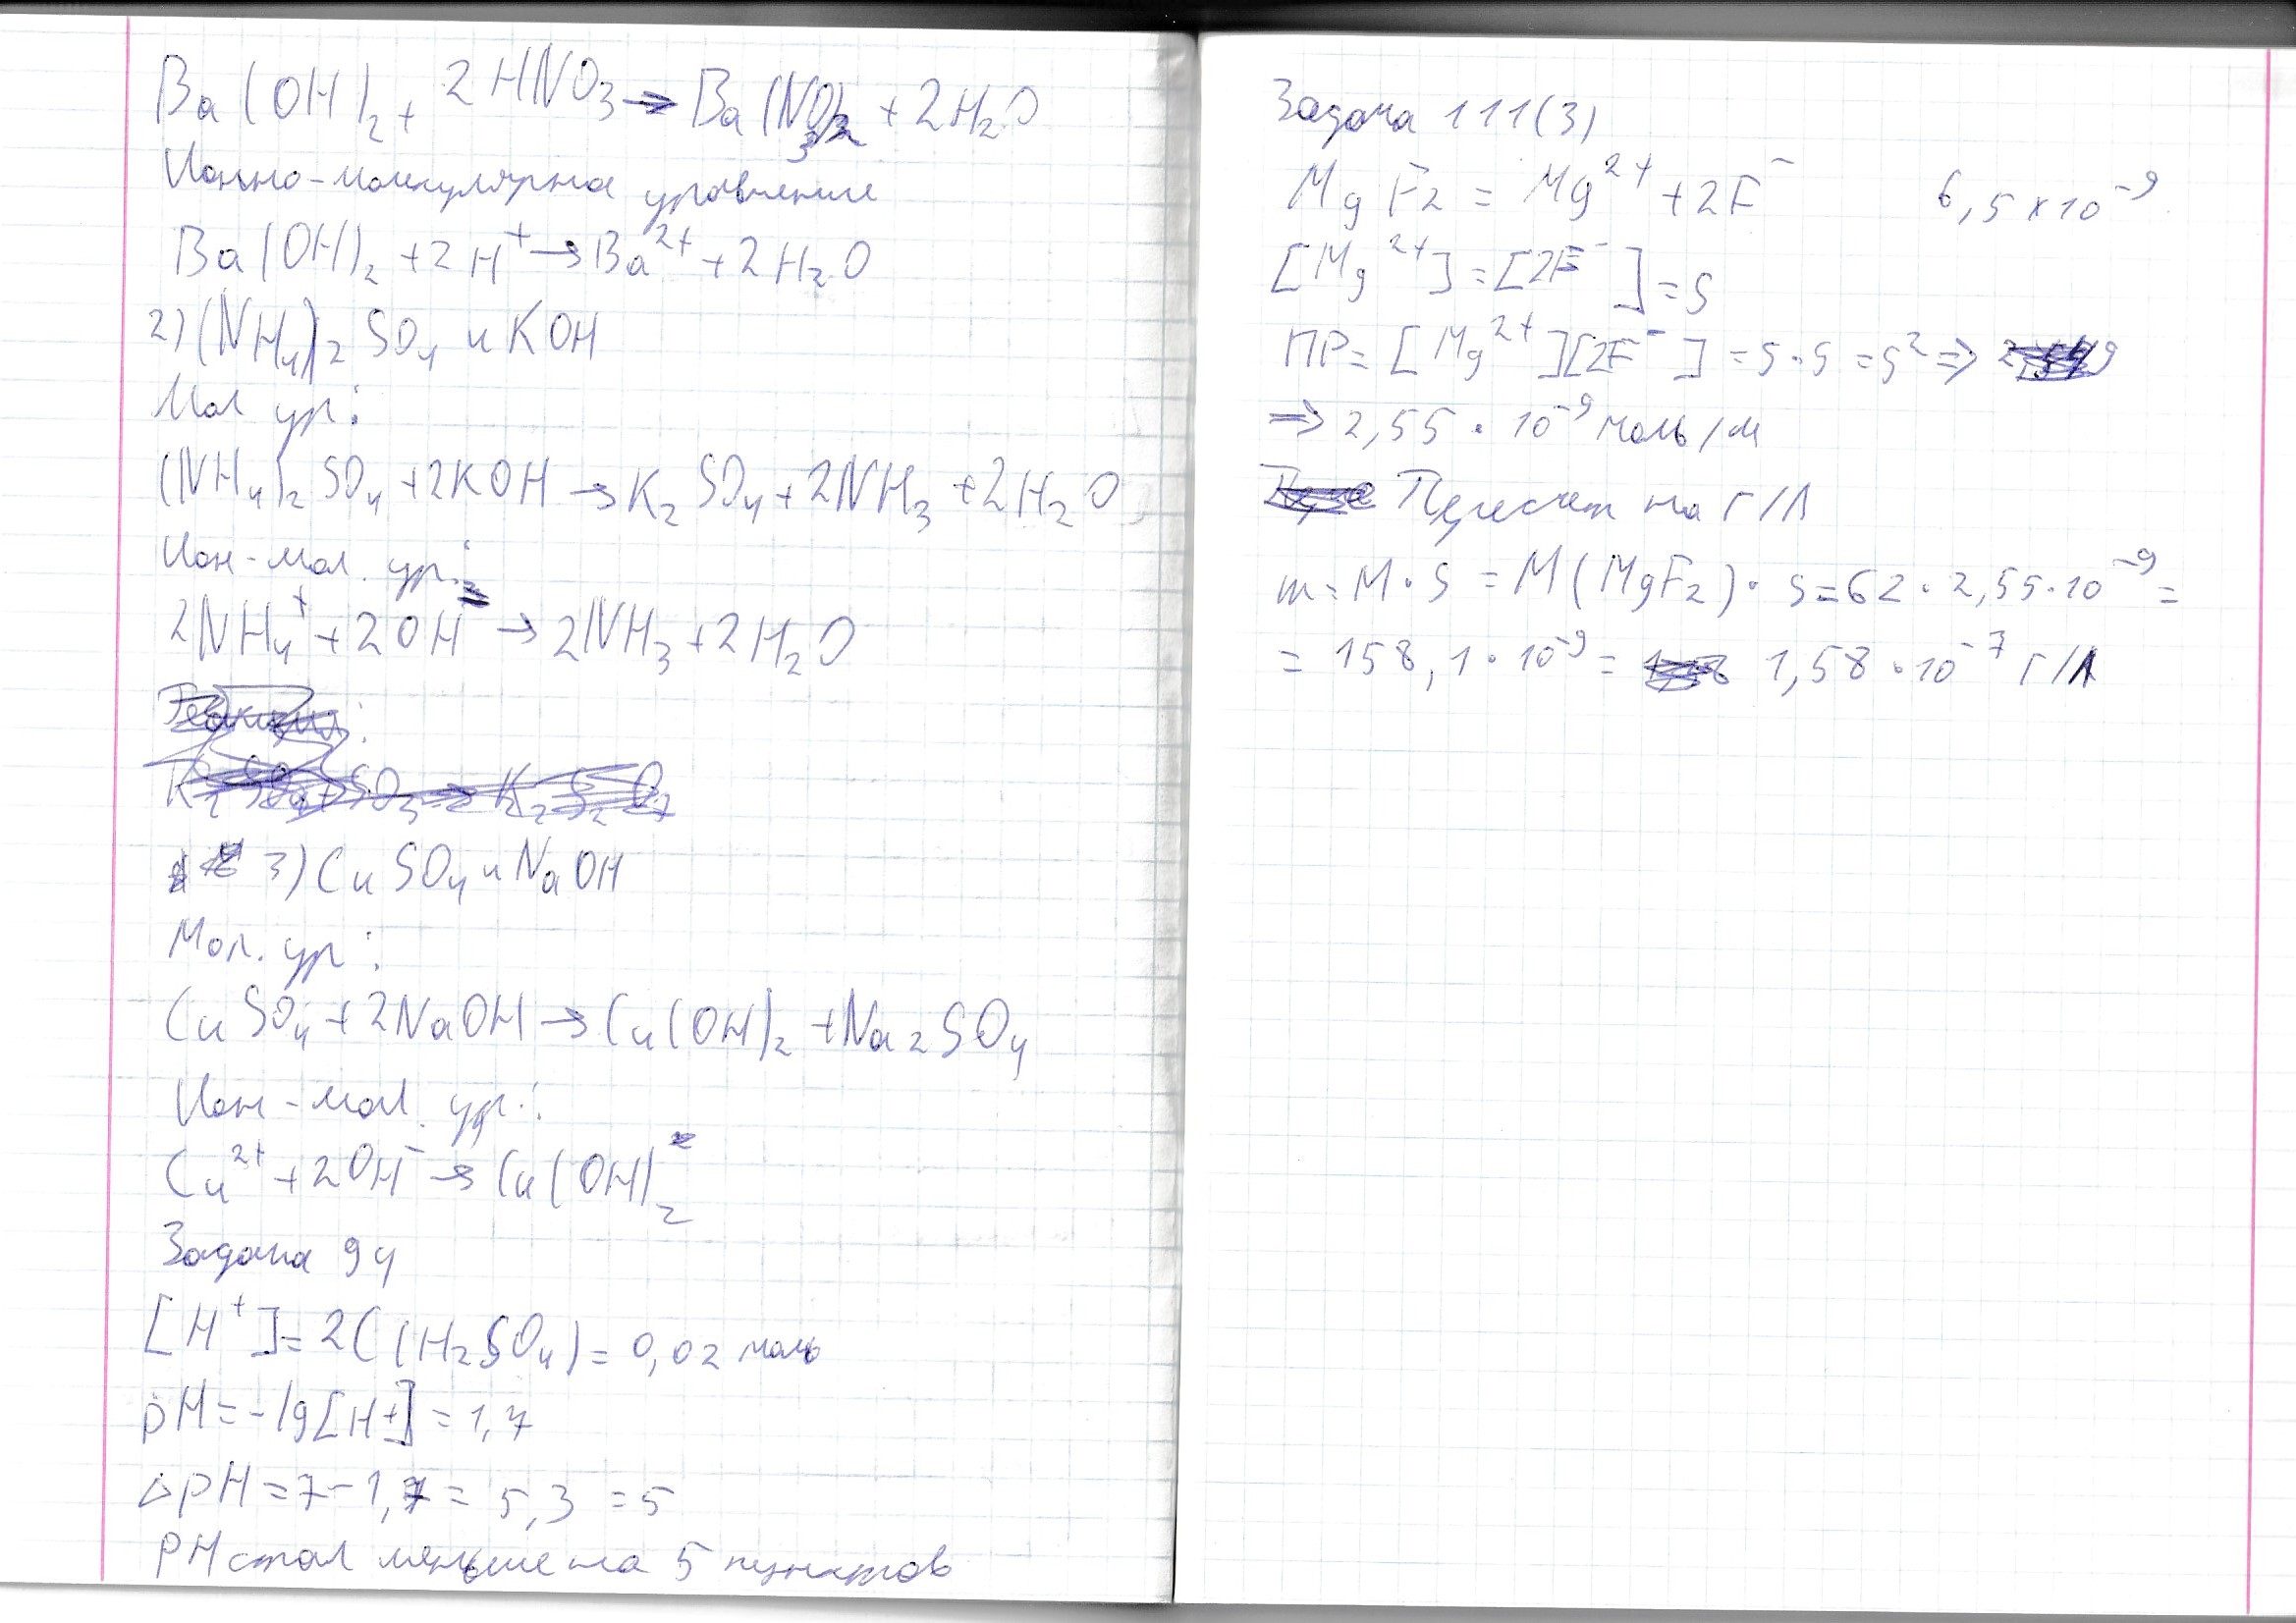 Ba(OH)₂ + 2HNO₃ → Ba(NO₃)₂ + 2H₂O
Ионно-молекулярное уравнение
Ba(OH)₂ + 2H⁺ → Ba²⁺ + 2H₂O
2) (NH₄)₂SO₄ и KOH
Мол ур:
(NH₄)₂SO₄ + 2KOH → K₂SO₄ + 2NH₃ + 2H₂O
Ион-мол. ур.:
2NH₄⁺ + 2OH⁻ → 2NH₃ + 2H₂O
3) CuSO₄ и NaOH
Мол. ур:
CuSO₄ + 2NaOH → Cu(OH)₂ + Na₂SO₄
Ион-мол. ур.:
Cu²⁺ + 2OH⁻ → Cu(OH)₂
Задача 94
[H⁺] = 2C(H₂SO₄) = 0,02 моль
pH = -lg[H+] = 1,7
△pH = 7-1,7 = 5,3 = 5
PH стал меньше на 5 пунктов
Задача 111(3)
MgF₂ = Mg²⁺ + 2F⁻ 6,5×10⁻⁹
[Mg²⁺] = [2F⁻] = S
ПР = [Mg²⁺][2F⁻] = S·S = S² ⇒
⇒ 2,55 · 10⁻⁹ моль/л
Пересчет на г/л
m = M·S = M(MgF₂)· S = 62 · 2,55·10⁻⁹ =
= 158,1·10⁻⁹ = 1,58·10⁻⁷ г/л